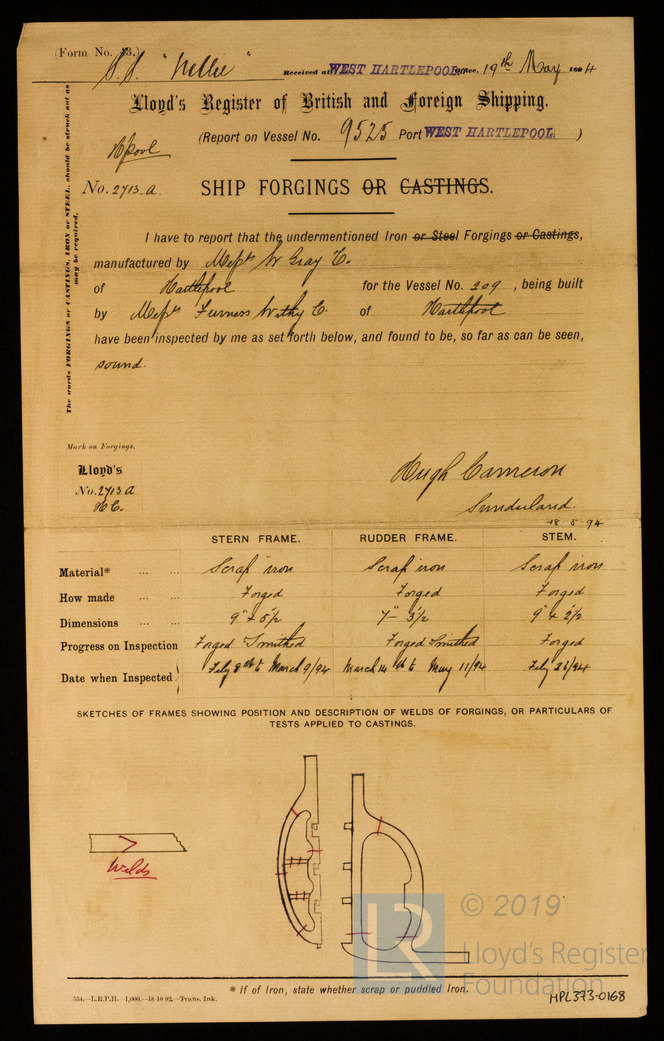 (Form No. 13.)
S.S. "Nellie"
Received at WEST HARTLEPOOL Office, 19th May 1894
Lloyd's Register of British and Foreign Shipping.
(Report on Vessel No. 9525 Port WEST HARTLEPOOL )
Hpool
No. 2713.A.
SHIP FORGINGS OR CASTINGS.
The words FORGINGS or CASTINGS, IRON or STEEL, should be struck out as
may be required.
I have to report that the undermentioned Iron or Steel Forgings or Castings,
manufactured by Messrs W Gray & Co.
of Hartlepool for the Vessel No. 209, being built
by Messrs Furness Withy & Co. of Hartlepool
have been inspected by me as set forth below, and found to be, so far as can be seen,
sound.
Mark on Forgings.
Lloyd's
No. 2713A
H C.
Hugh Cameron
Sunderland.
18.5.94
STERN FRAME. RUDDER FRAME. STEM.
Material* ... ... Scrap iron Scrap iron Scrap iron
How made ... ... Forged Forged Forged
Dimensions ... ... 9" x 5½ 7" 3½ 9" x 2½
Progress on Inspection Forged Smithed Forged Smithed Forged
Date when Inspected Feby 8th to March 9/94 March 14th to May 11/94 Feby 26/94
SKETCHES OF FRAMES SHOWING POSITION AND DESCRIPTION OF WELDS OF FORGINGS, OR PARTICULARS OF
TESTS APPLIED TO CASTINGS.
Welds
LR
© 2019
Lloyd's Register
Foundation
* If of Iron, state whether scrap or puddled Iron.
534.—L.R.P.H. 1,000.—18.10.92.—Trans. Ink.
HPL373-0168